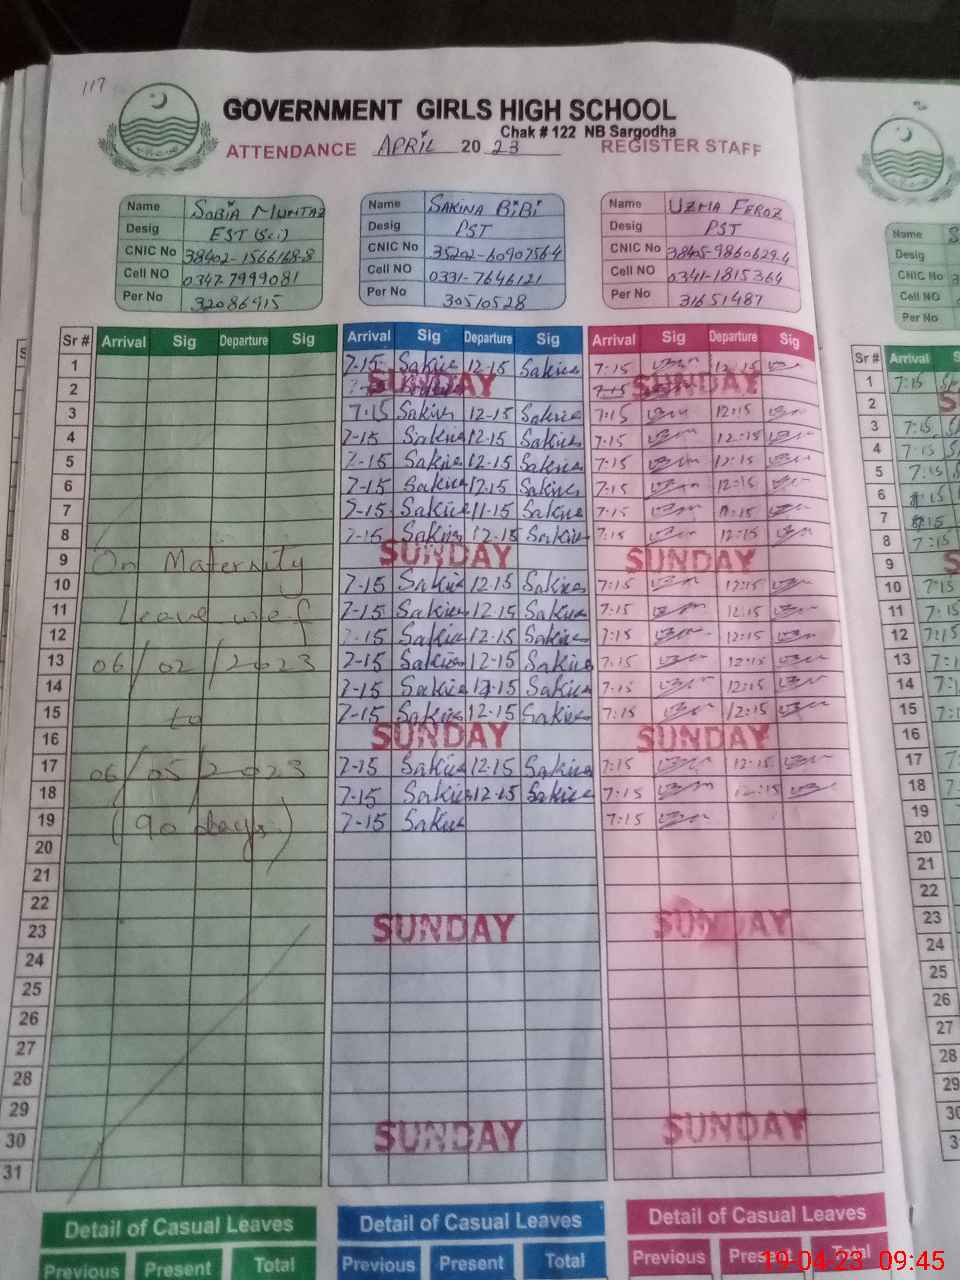 117
GOVERNMENT GIRLS HIGH SCHOOL
Chak # 122 NB Sargodha
ATTENDANCE APRIL 20 23 REGISTER STAFF
Name SOBIA MUMTAZ Name SAKINA BIBI Name UZMA FEROZ Name
Desig EST (Sci) Desig PST Desig PST Desig
CNIC No 38402-1566168-8 CNIC No 35202-6090756-4 CNIC No 38405-9860629-4 CNIC No
Cell NO 0347-7999081 Cell NO 0331-7646121 Cell NO 0341-1815364 Cell NO
Per No 32086915 Per No 30510528 Per No 31651487 Per No
Sr # Arrival Sig Departure Sig Arrival Sig Departure Sig Arrival Sig Departure Sig Sr # Arrival
1 7-15 Sakina 12-15 Sakina 7:15 12:15 1 7:15
2 SUNDAY 7-15 SUNDAY 2
3 7-15 Sakina 12-15 Sakina 7:15 12:15 3 7:15
4 7-15 Sakina 12-15 Sakina 7:15 12:15 4 7:15
5 7-15 Sakina 12-15 Sakina 7:15 12:15 5 7:15
6 7-15 Sakina 12-15 Sakina 7:15 12:15 6
7 7-15 Sakina 11-15 Sakina 7:15 11:15 7
8 7-15 Sakina 12-15 Sakina 7:15 12:15 8 7:15
9 On Maternity SUNDAY SUNDAY 9
10 7-15 Sakina 12-15 Sakina 7:15 12:15 10 7:15
11 Leave w.e.f 7-15 Sakina 12-15 Sakina 7:15 12:15 11 7:15
12 7-15 Sakina 12-15 Sakina 7:15 12:15 12 7:15
13 06/02/2023 7-15 Sakina 12-15 Sakina 7:15 12:15 13
14 7-15 Sakina 12-15 Sakina 7:15 12:15 14
15 to 7-15 Sakina 12-15 Sakina 7:15 12:15 15
16 SUNDAY SUNDAY 16
17 06/05/2023 7-15 Sakina 12-15 Sakina 7:15 12:15 17
18 7-15 Sakina 12-15 Sakina 7:15 12:15 18
19 (90 days) 7-15 Sakina 7:15 19
20 20
21 21
22 22
23 SUNDAY SUNDAY 23
24 24
25 25
26 26
27 27
28 28
29 29
30 SUNDAY SUNDAY
31
Detail of Casual Leaves Detail of Casual Leaves Detail of Casual Leaves
Previous Present Total Previous Present Total Previous Present Total
19-04-23 09:45